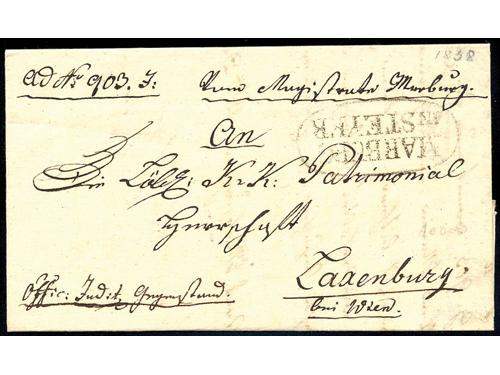 1838
Ad No 903. J:
Vom Magistrate Marburg.
MARBURG
IN STEYER
An
Die Löbl: K: K: Patrimonial
Herrschaft
Laxenburg
bei Wien.
Offic: Judit: Gegenstand.